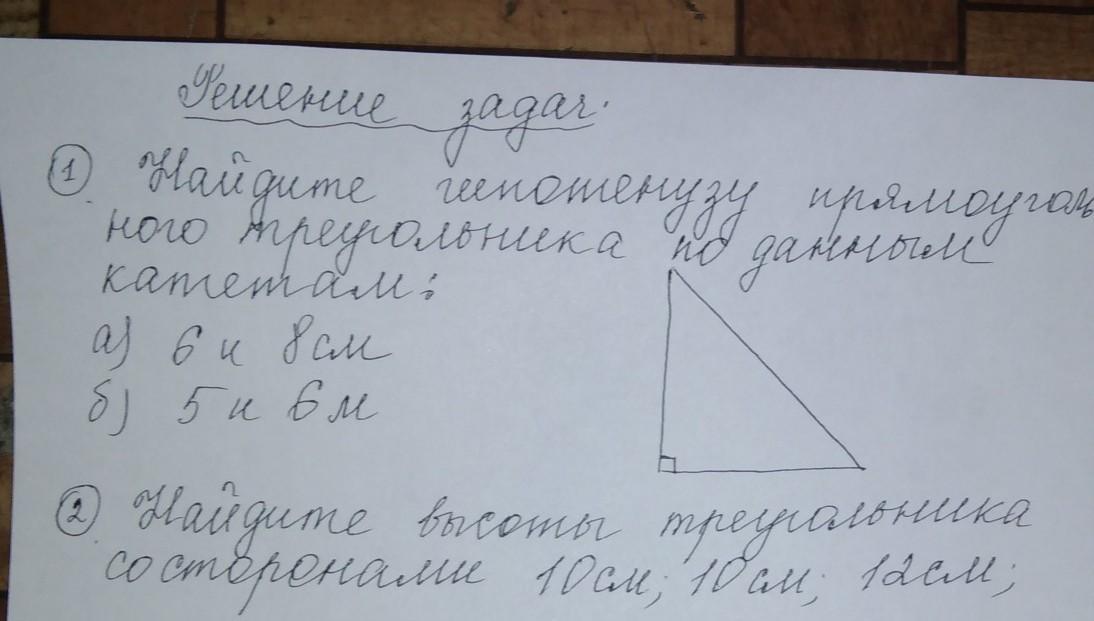 Решение задач.
1 Найдите гипотенузу прямоуголь
ного треугольника по данным
катетам:
а) 6 и 8 см
б) 5 и 6 м
2 Найдите высоты треугольника
со сторонами 10 см; 10 см; 12 см;